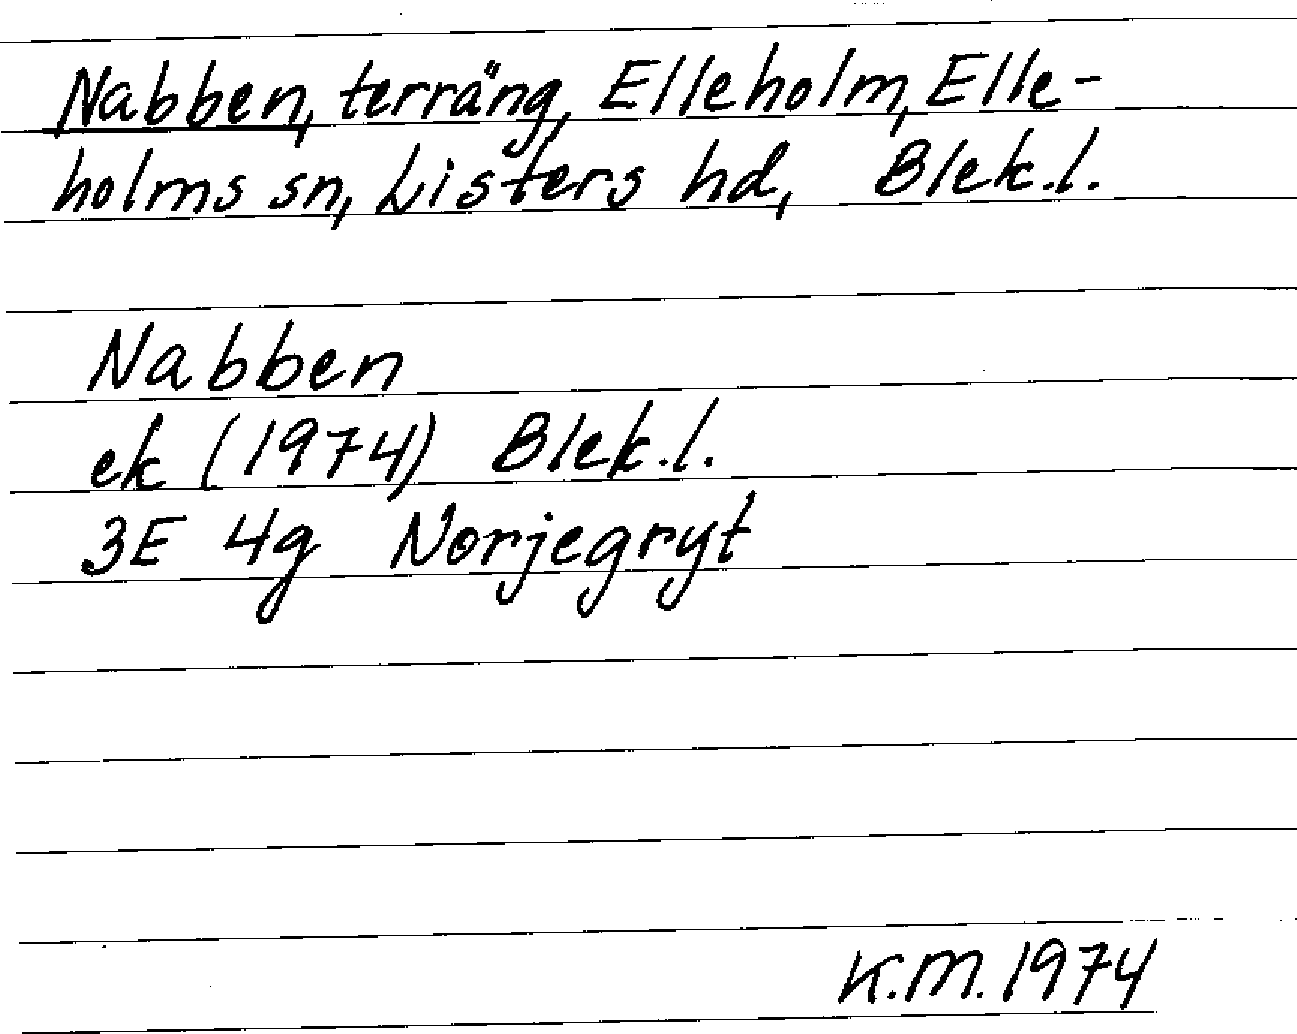 Nabben, terräng, Elleholm, Elle-
holms sn, Listers hd, Blek.l.
Nabben
ek (1974) Blek.l.
3E 4g Norjegryt
K.M. 1974